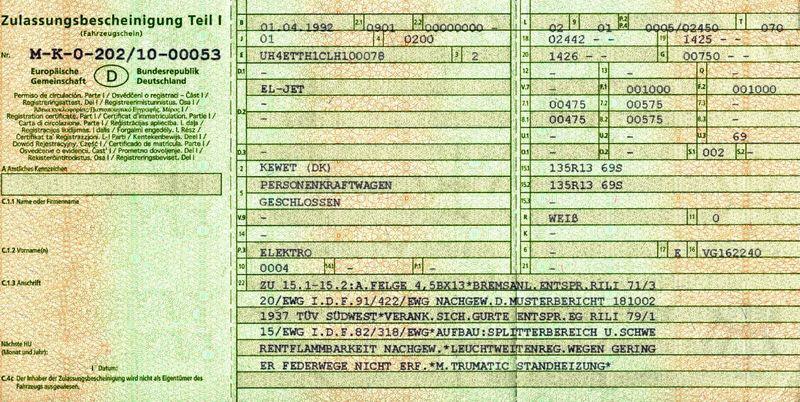 Zulassungsbescheinigung Teil I
(Fahrzeugschein)
Nr. M-K-0-202/10-00053
Europäische Gemeinschaft D Bundesrepublik Deutschland
Permiso de circulación. Parte I / Osvědčení o registraci – Část I /
Registreringsattest. Del I / Registreerimistunnistus. Osa I /
Registration certificate. Part I / Certificat d'immatriculation. Partie I /
Carta di circolazione. Parte I / Reģistrācijas apliecība. I. daļa /
Registracijos liudijimas. I dalis / Forgalmi engedély. I. Rész /
Ċertifikat ta' Reġistrazzjoni. L-I Parti / Kentekenbewijs. Deel I /
Dowód Rejestracyjny. Część I / Certificado de matrícula. Parte I /
Osvedčenie o evidencii. Časť I / Prometno dovoljenje. Del I /
Rekisteröintitodistus. Osa I / Registreringsbeviset. Del I
A Amtliches Kennzeichen
C.1.1 Name oder Firmenname
C.1.2 Vorname(n)
C.1.3 Anschrift
Nächste HU
(Monat und Jahr):
Datum:
C.4c Der Inhaber der Zulassungsbescheinigung wird nicht als Eigentümer des
Fahrzeugs ausgewiesen.
B 01.04.1992 2.1 0901 2.2 00000000 -
J 01 4 0200
E UH4ETTH1CLH100078 3 2
D.1 -
EL-JET
D.2 -
-
D.3 -
2 KEWET (DK)
5 PERSONENKRAFTWAGEN
GESCHLOSSEN
V.9 -
14 -
P.3 ELEKTRO
10 0004 14.1 - P.1 -
L 02 9 01 P.2 P.4 0005/02450 T 070
18 02442 - - 19 1425 - -
20 1426 - - G 00750 - -
12 - 13 - Q -
V.7 - F.1 001000 F.2 001000
7.1 00475 7.2 00575 7.3 -
8.1 00475 8.2 00575 8.3 -
U.1 - U.2 - U.3 69
O.1 - O.2 - S.1 002 S.2 -
15.1 135R13 69S
15.2 135R13 69S
15.3 -
R WEIß 11 0
K -
6 - 17 E 16 VG162240
21 -
22 ZU 15.1-15.2:A.FELGE 4,5BX13*BREMSANL.ENTSPR.RILI 71/3
20/EWG I.D.F.91/422/EWG NACHGEW.D.MUSTERBERICHT 181002
1937 TÜV SÜDWEST*VERANK.SICH.GURTE ENTSPR.EG RILI 79/1
15/EWG I.D.F.82/318/EWG*AUFBAU:SPLITTERBEREICH U.SCHWE
RENTFLAMMBARKEIT NACHGEW.*LEUCHTWEITENREG.WEGEN GERING
ER FEDERWEGE NICHT ERF.*M.TRUMATIC STANDHEIZUNG*